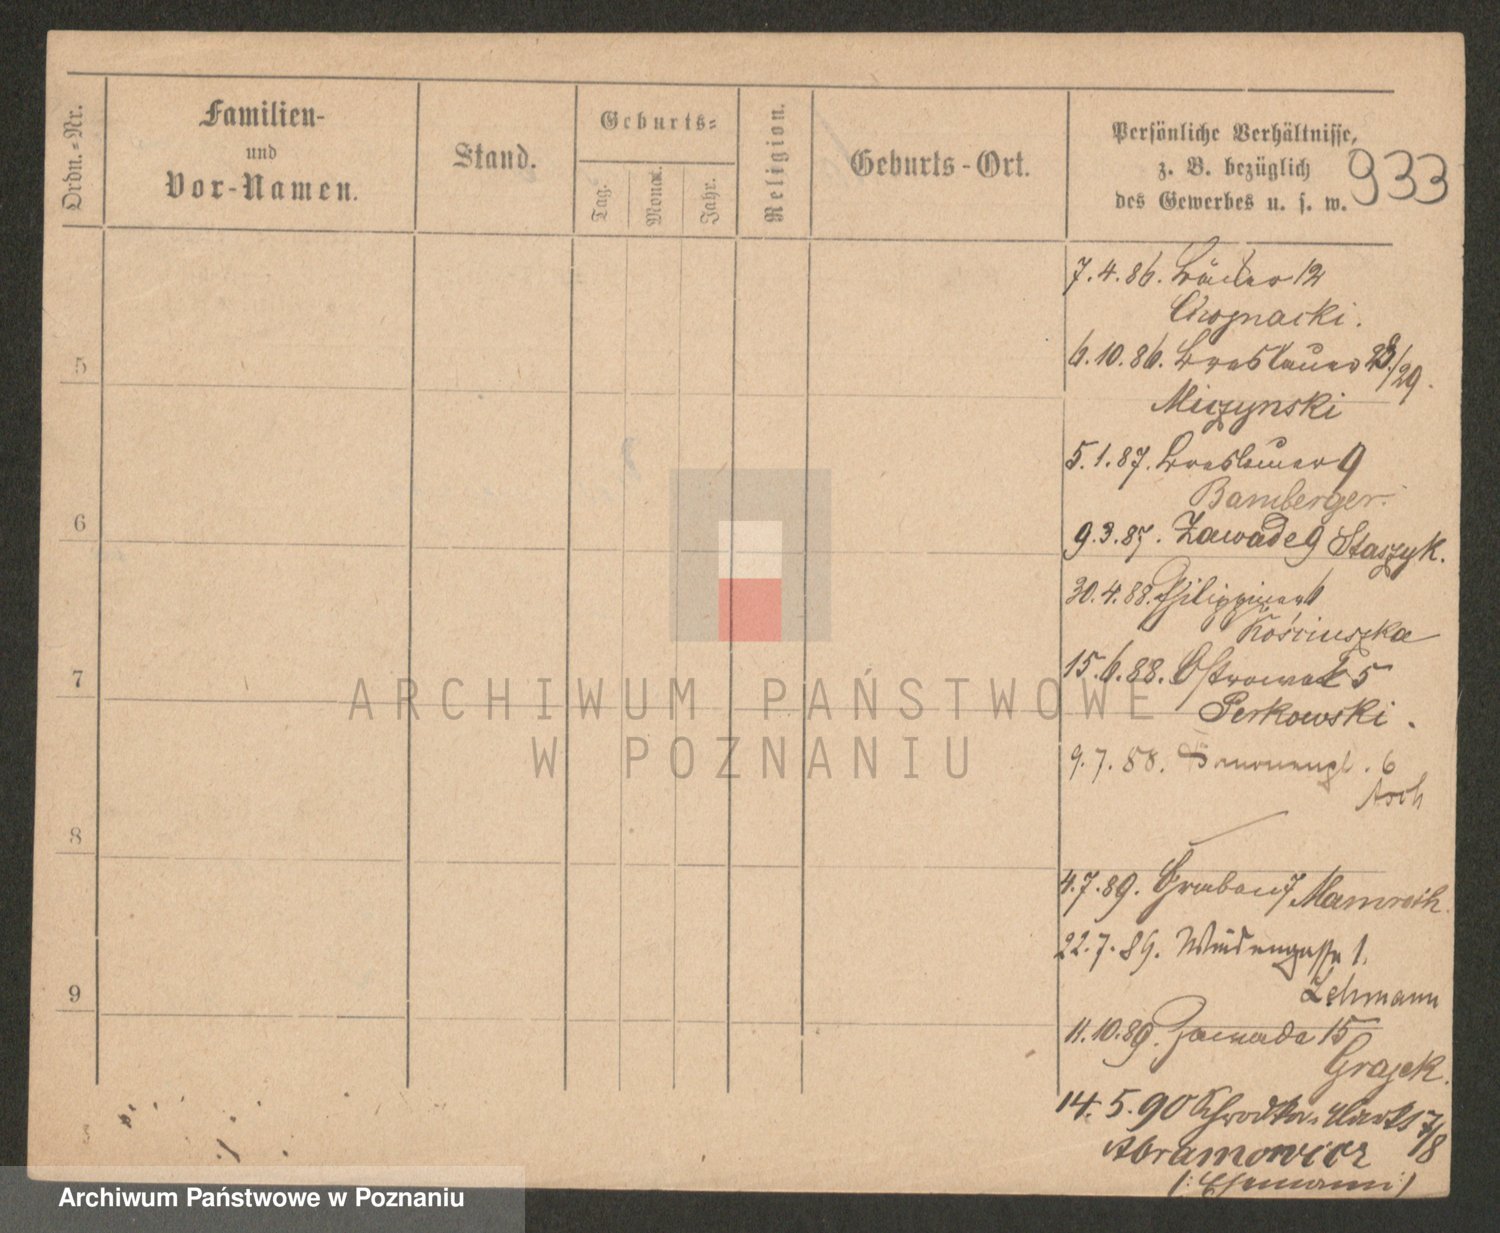 Ordn.-Nr.
Familien-
und
Vor-Namen.
Stand.
Geburts-
Tag.
Monat.
Jahr.
Religion.
Geburts-Ort.
Persönliche Verhältnisse,
z. B. bezüglich
des Gewerbes u. s. w.
933
7.4.86. 12
Chojnacki.
6.10.86. Breslauer 28/29.
Miczynski
5
5.1.87. Breslauer 9
Bamberger.
9.3.87. Zawade 9 Staszyk.
6
30.4.88. Philippiner 1
Kościuszka
15.6.88. Ostrowek 5
Perkowski.
7
9.7.88. 6
Asch
8
4.7.89. Graben 7 Mamroth.
22.7.89. Weidengasse 1.
Lehmann
9
11.10.89. Zawada 15
Grajek.
14.5.90 Schrodka Markt 7/8
Abramowicz
(: Ehemann :)
ARCHIWUM PAŃSTWOWE
W POZNANIU
Archiwum Państwowe w Poznaniu